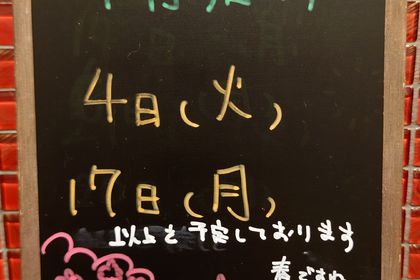 4日(火)
17日(月)
以上を予定しております
春ですね